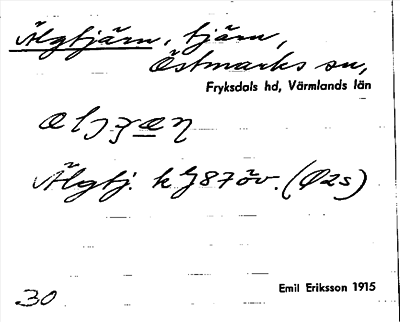 Älgtjärn, tjärn,
Östmarks sn,
Fryksdals hd, Värmlands län
Älgtj. k 87 öv. (Ø2s)
Emil Eriksson 1915
30